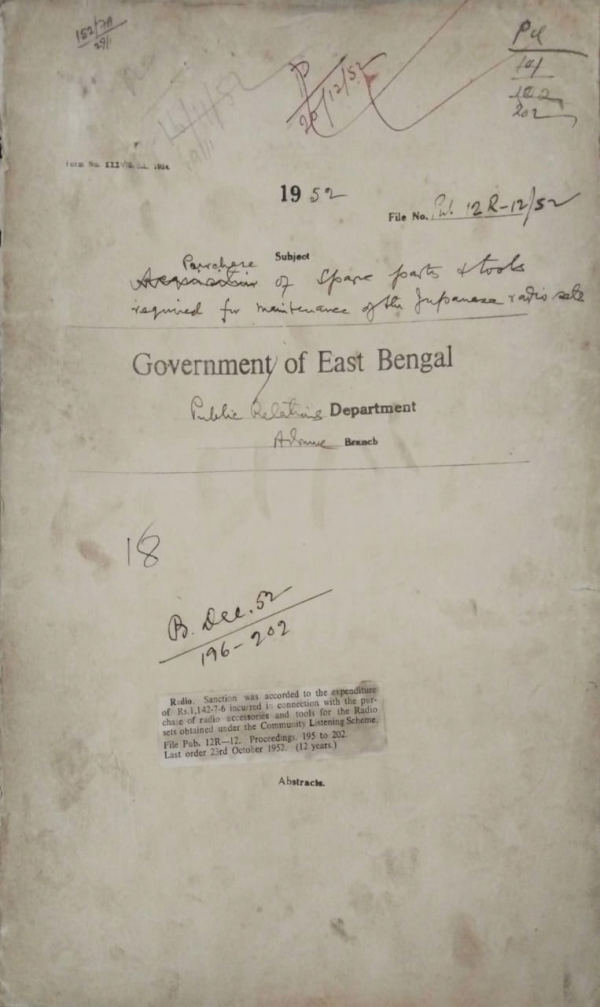 152/7A
29/1
20/12/52
202
1952
File No. Pub. 12R-12/52
Subject
Purchase
of Spare parts & tools
required for maintenance of the Japanese radio sets
Government of East Bengal
Public Relations Department
Branch
18
B. Dec. 52
196-202
Radio. Sanction was accorded to the expenditure
of Rs.1,142-7-6 incurred in connection with the pur-
chase of radio accessories and tools for the Radio
sets obtained under the Community Listening Scheme.
File Pub. 12R—12. Proceedings. 195 to 202.
Last order 23rd October 1952. (12 years.)
Abstracts.